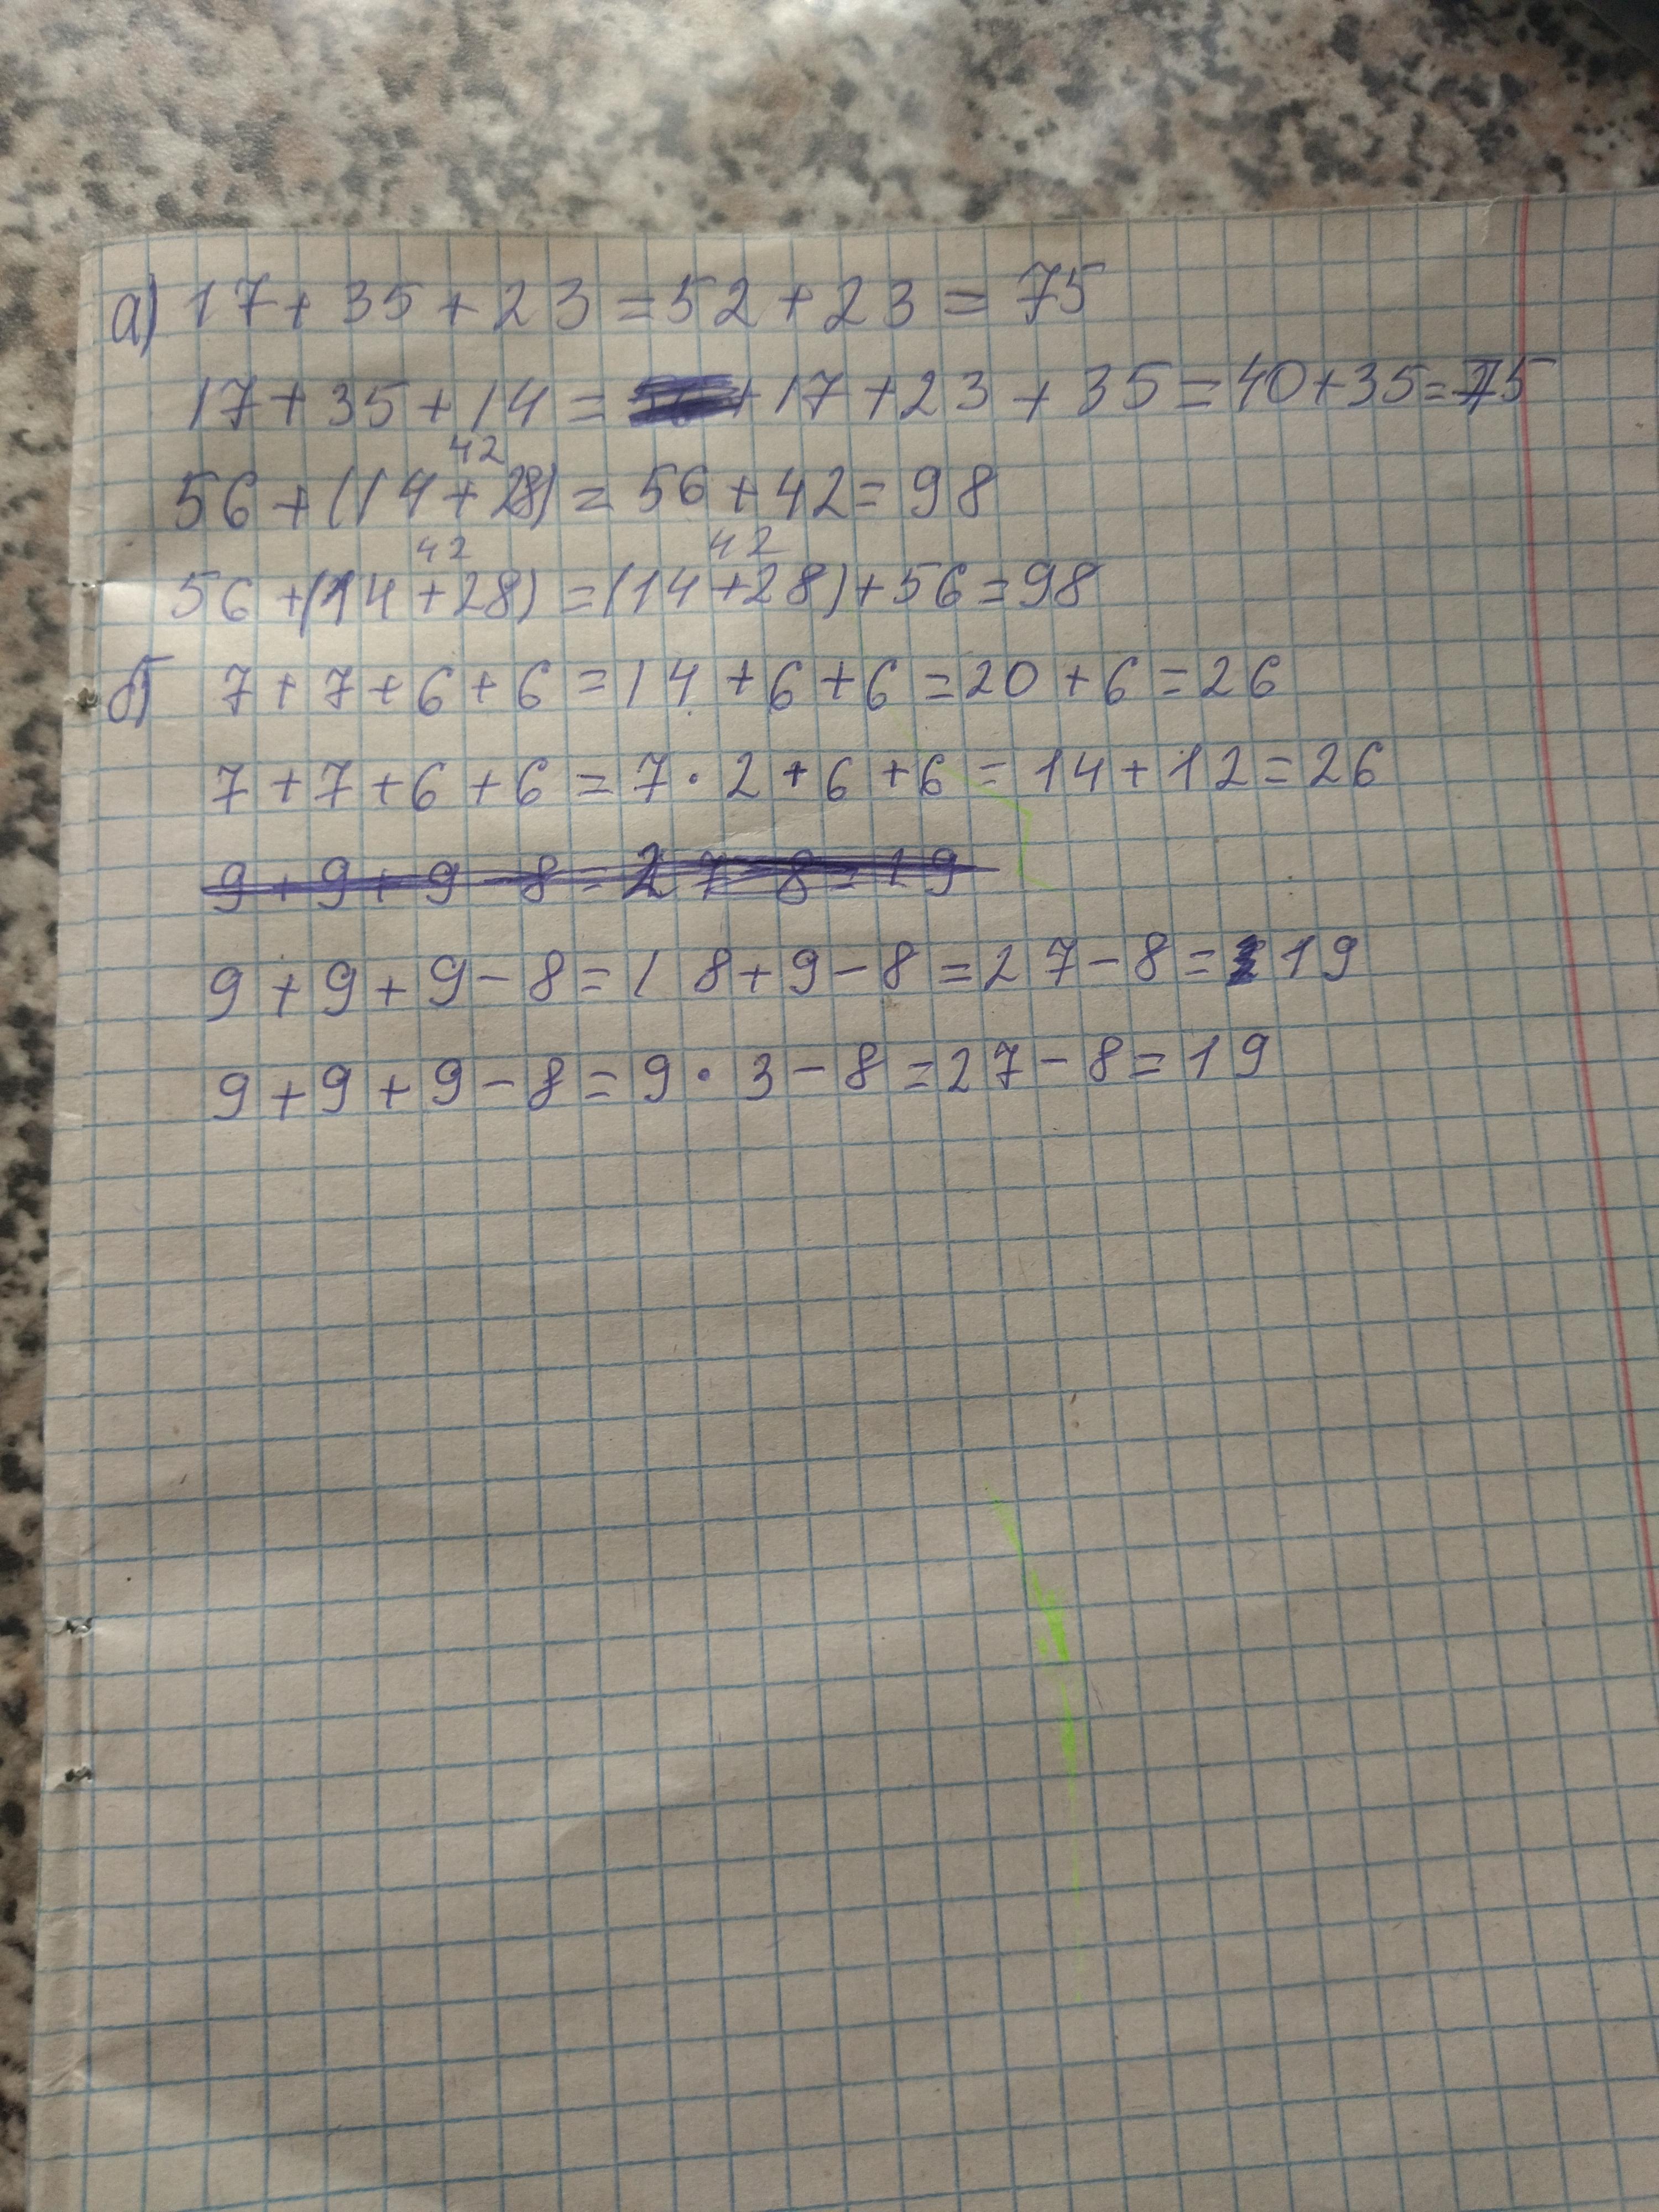 а) 17 + 35 + 23 = 52 + 23 = 75
17 + 35 + 14 = + 17 + 23 + 35 = 40 + 35 = 75
42
56 + (14 + 28) = 56 + 42 = 98
42 42
56 + (14 + 28) = (14 + 28) + 56 = 98
б) 7 + 7 + 6 + 6 = 14 + 6 + 6 = 20 + 6 = 26
7 + 7 + 6 + 6 = 7 · 2 + 6 + 6 = 14 + 12 = 26
9 + 9 + 9 - 8 = 27 - 8 = 19
9 + 9 + 9 - 8 = 18 + 9 - 8 = 27 - 8 = 19
9 + 9 + 9 - 8 = 9 · 3 - 8 = 27 - 8 = 19